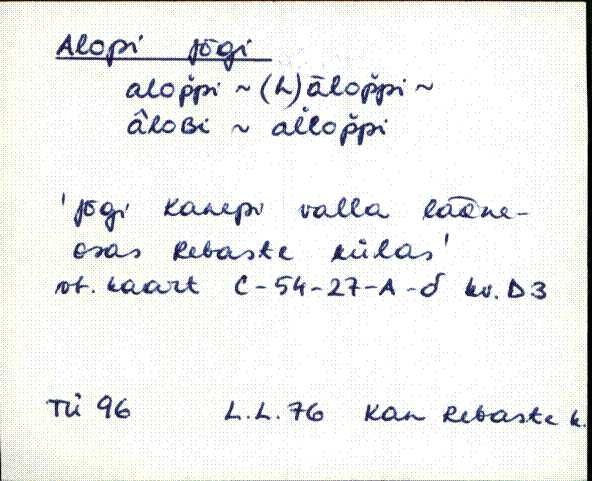 Alopi jõgi
alop̆pi ~ (h)ālop̆pi ~
âloʙi ~ al̆lop̆pi
'jõgi Kanepi valla lääne-
osas Rebaste külas'
vt. kaart C-54-27-A-δ kv. D3
TÜ 96 L.L. 76 Kan Rebaste k.